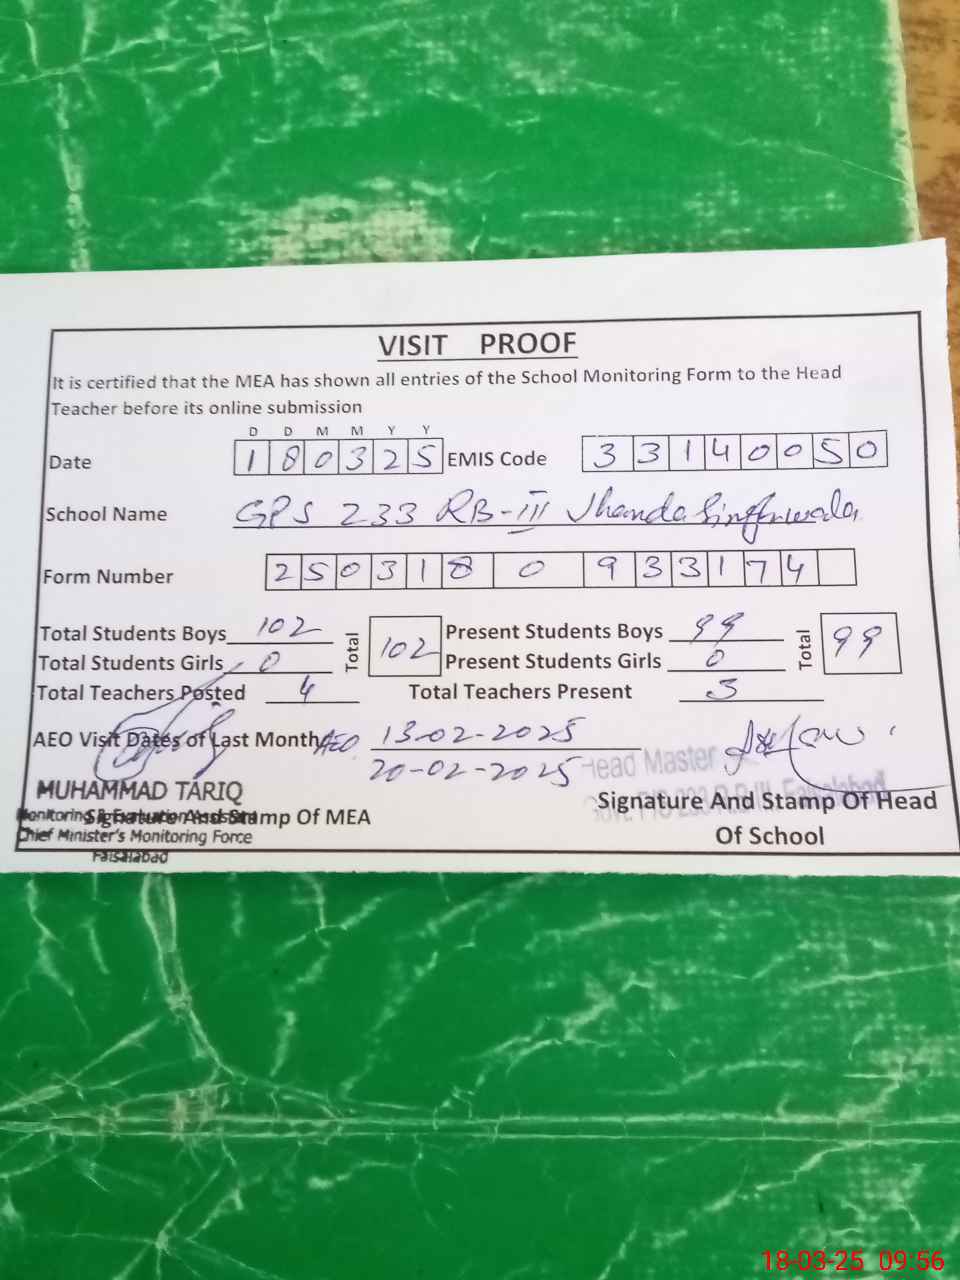 VISIT PROOF
It is certified that the MEA has shown all entries of the School Monitoring Form to the Head
Teacher before its online submission
D D M M Y Y
Date 1 8 0 3 2 5 EMIS Code 3 3 1 4 0 0 5 0
School Name GPS 233 RB-III Jhanda Singhwala
Form Number 2 5 0 3 1 8 0 9 3 3 1 7 4
Total Students Boys 102 Total 102 Present Students Boys 99 Total 99
Total Students Girls 0 Present Students Girls 0
Total Teachers Posted 4 Total Teachers Present 3
AEO Visit Dates of Last Month AEO 13-02-2025
20-02-2025 Head Master
MUHAMMAD TARIQ
Monitoring & Evaluation Assistant
Signature And Stamp Of MEA Signature And Stamp Of Head
Chief Minister's Monitoring Force Of School
Faisalabad
18-03-25 09:56